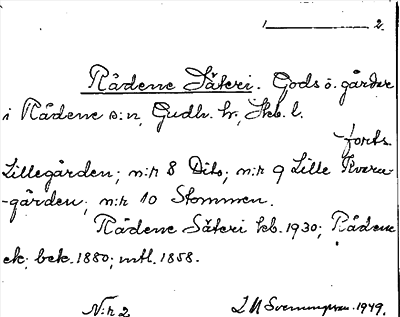 1 2.
Rådene Säteri. Gods o. gårdar
i Rådene s:n, Gudh. hr, Skb. l.
forts.
Lillegården; n:r 8 Dito; n:r 9 Lille Kvarn-
-gården; n:r 10 Stommen.
Rådene Säteri kb. 1930; Rådene
ek. bek. 1880; mtl. 1858.
N:r 2 1949.